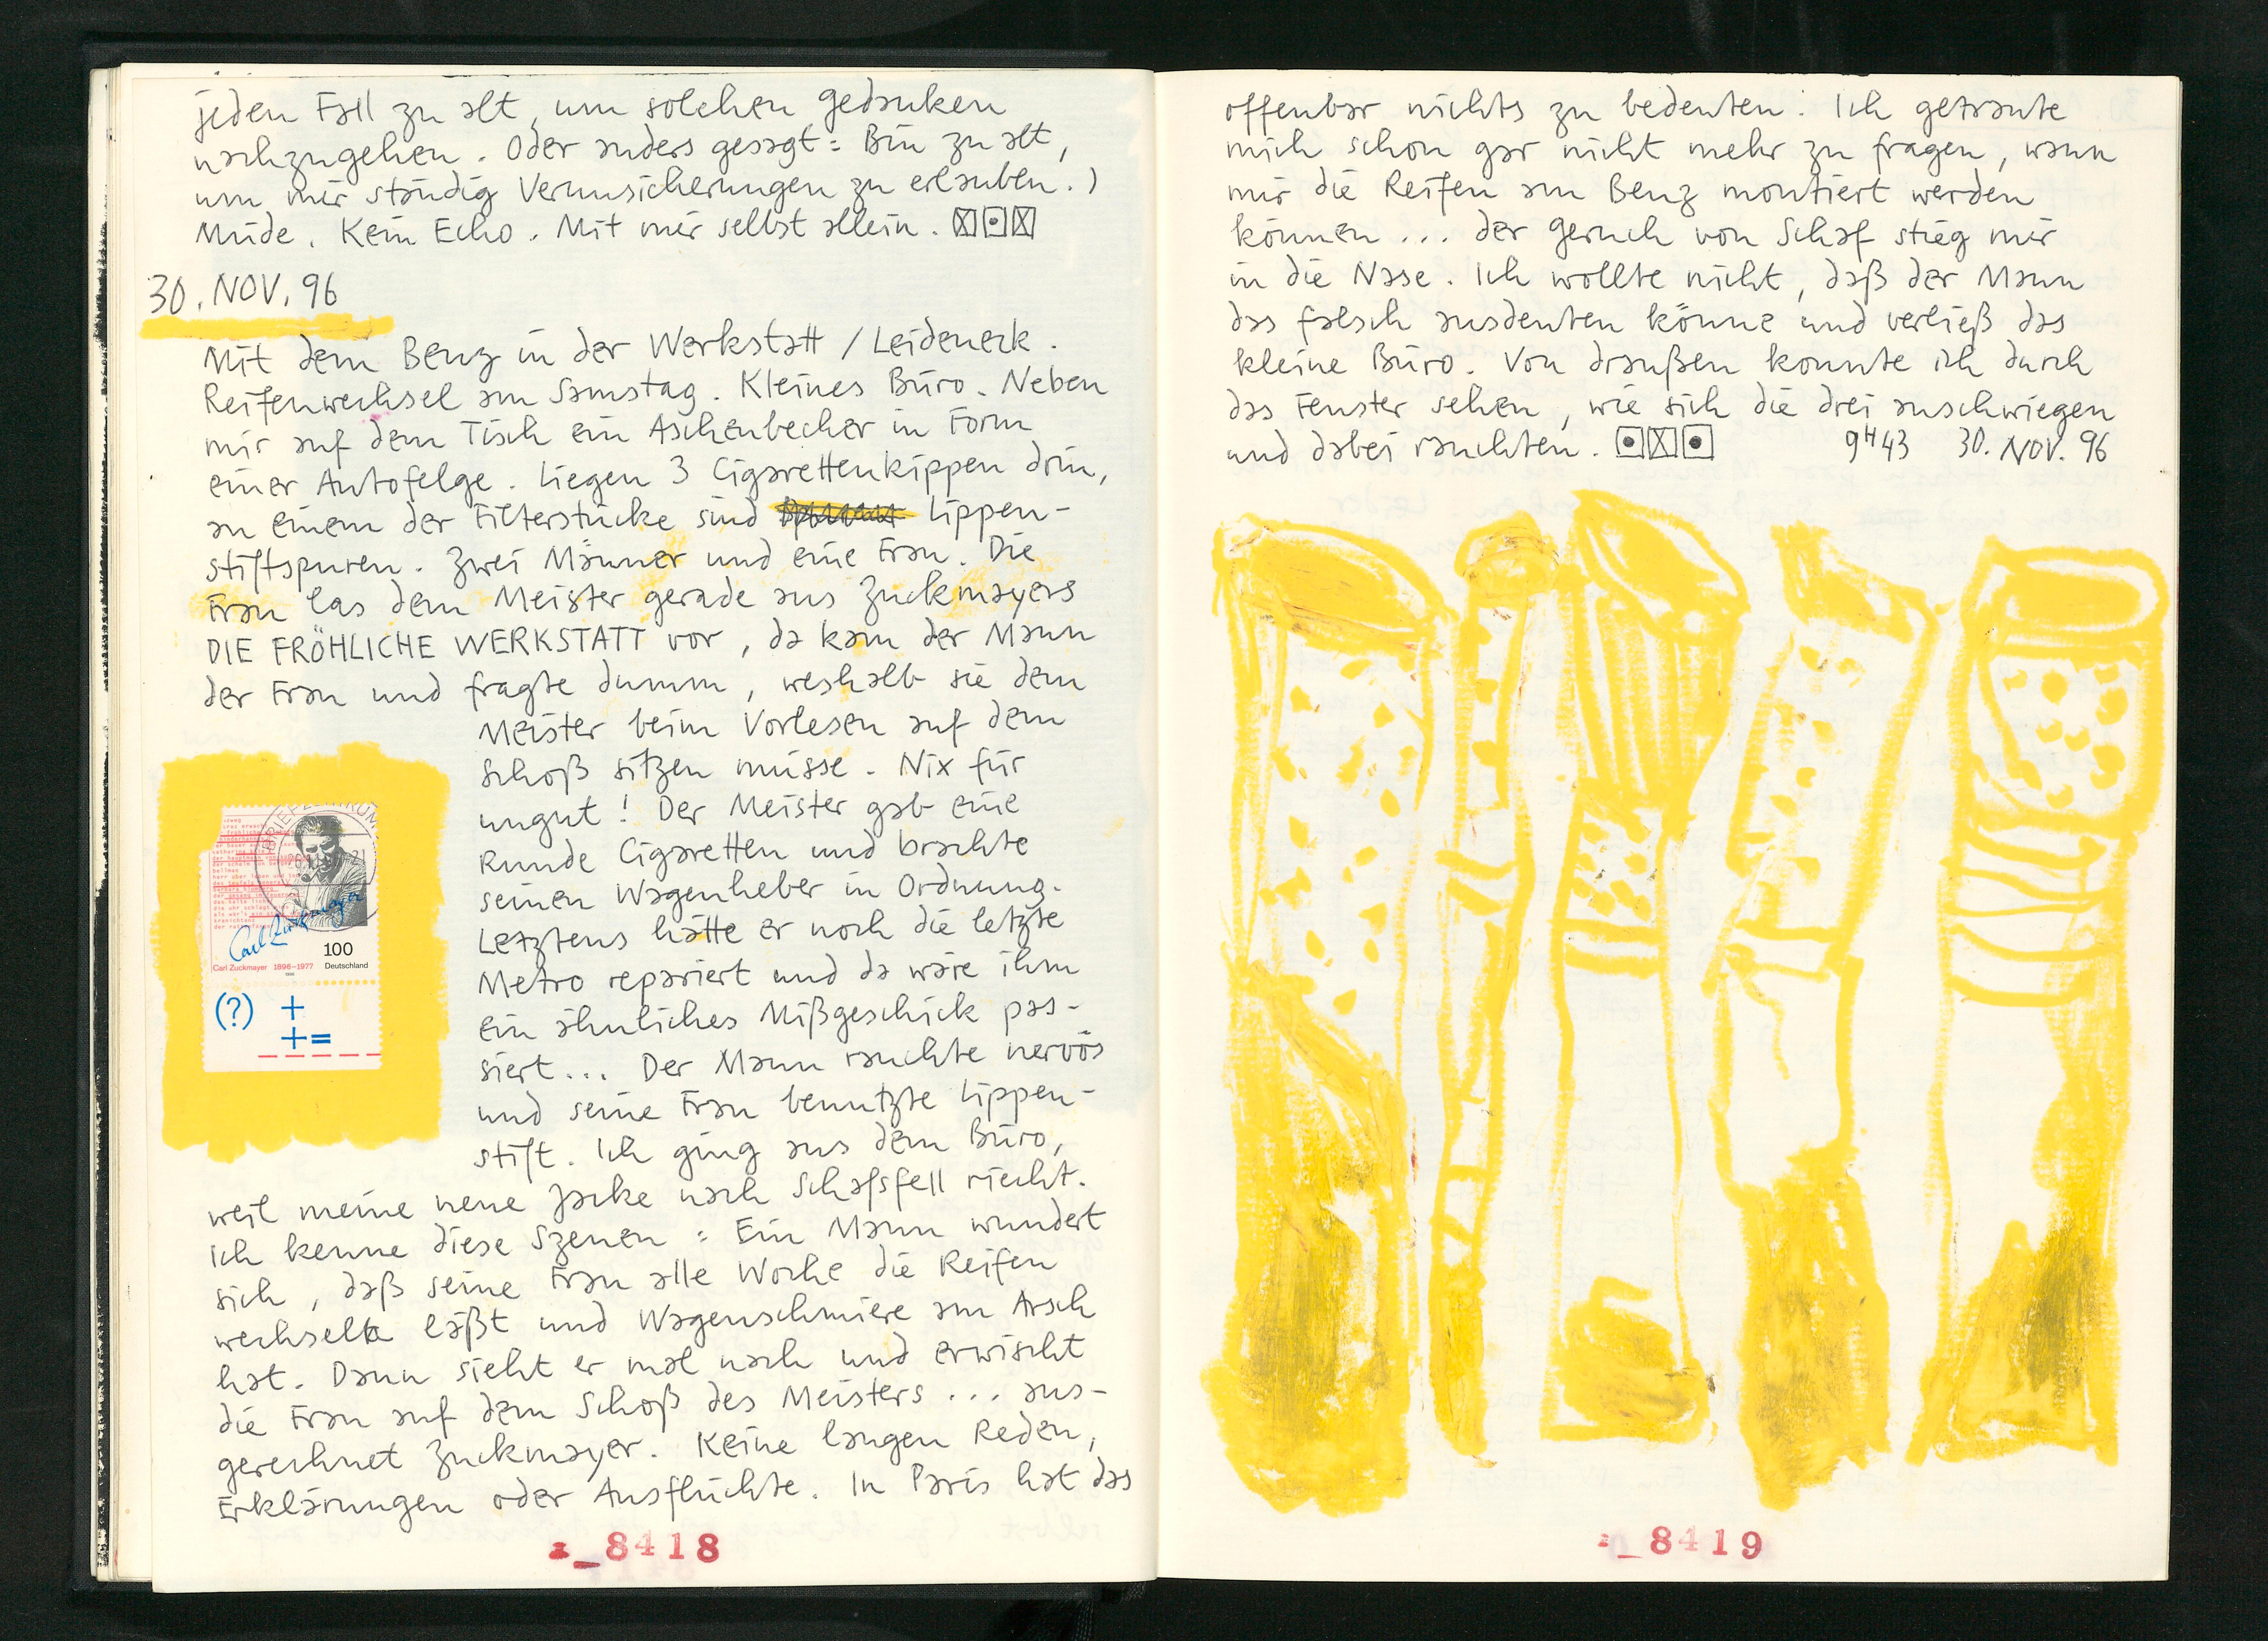 jeden Fall zu alt, um solchen Gedanken
nachzugehen. Oder anders gesagt: Bin zu alt,
um mir ständig Verunsicherungen zu erlauben.)
Müde. Kein Echo. Mit mir selbst allein.
30. NOV. 96
Mit dem Benz in der Werkstatt / Leideneck.
Reifenwechsel am Samstag. Kleines Büro. Neben
mir auf dem Tisch ein Aschenbecher in Form
einer Autofelge. Liegen 3 Cigarettenkippen drin,
an einem der Filterstücke sind Lippen-
stiftspuren. Zwei Männer und eine Frau. Die
Frau las dem Meister gerade aus Zuckmayers
DIE FRÖHLICHE WERKSTATT vor, da kam der Mann
der Frau und fragte dumm, weshalb sie dem
Meister beim Vorlesen auf dem
Schoß sitzen müsse. Nix für
ungut! Der Meister gab eine
Runde Cigaretten und brachte
seinen Wagenheber in Ordnung.
Letztens hätte er noch die letzte
Metro repariert und da wäre ihm
ein ähnliches Mißgeschick pas-
siert... Der Mann rauchte nervös
und seine Frau benutzte Lippen-
stift. Ich ging aus dem Büro,
weil meine neue Jacke nach Schafsfell riecht.
Ich kenne diese Szenen: Ein Mann wundert
sich, daß seine Frau alle Woche die Reifen
wechseln läßt und Wagenschmiere am Arsch
hat. Dann sieht er mal nach und erwischt
die Frau auf dem Schoß des Meisters... aus-
gerechnet Zuckmayer. Keine langen Reden,
Erklärungen oder Ausflüchte. In Paris hat das
Carl Zuckmayer
100
Carl Zuckmayer 1896–1977 Deutschland
(?) +
+=
8418
offenbar nichts zu bedeuten. Ich getraute
mich schon gar nicht mehr zu fragen, wann
mir die Reifen am Benz montiert werden
können... der Geruch von Schaf stieg mir
in die Nase. Ich wollte nicht, daß der Mann
das falsch ausdeuten könne und verließ das
kleine Büro. Von draußen konnte ich durch
das Fenster sehen, wie sich die drei anschwiegen
und dabei rauchten. 9H43 30. NOV. 96
8419